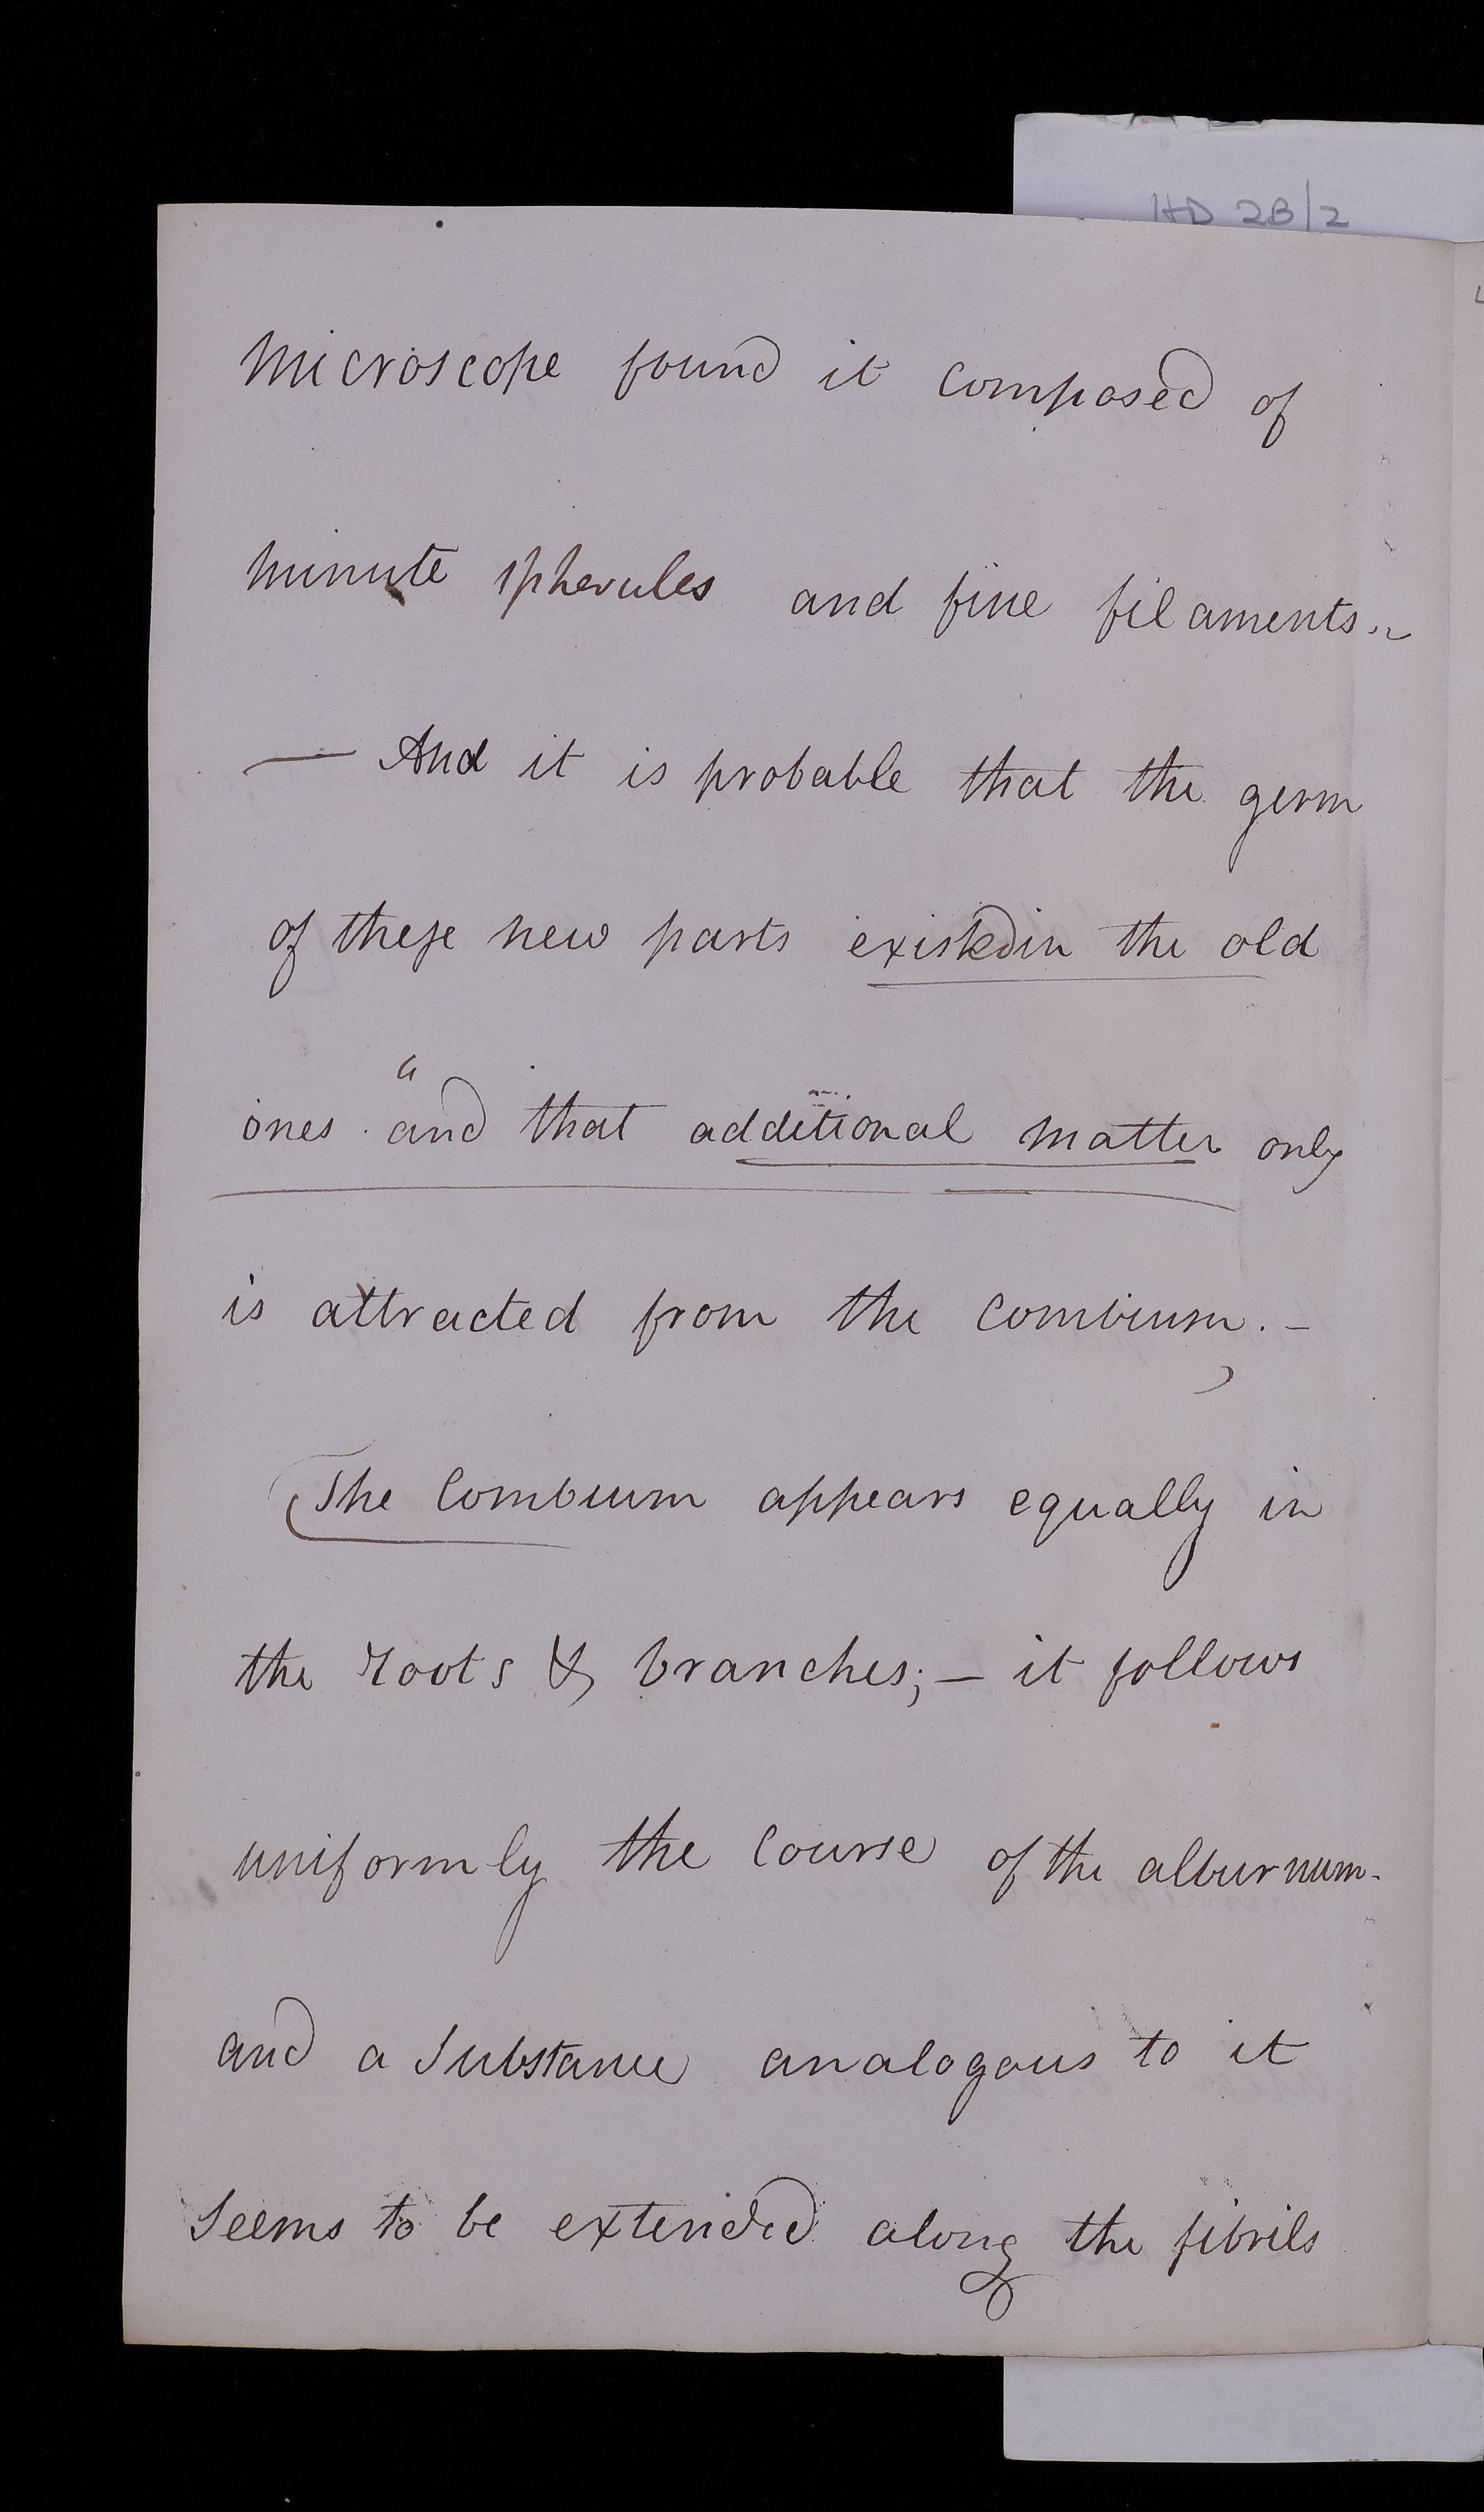 HD 2B/2
Microscope found it composed of
minute spherules and fine filaments.
— And it is probable that the germ
of these new parts existed in the old
ones "and that additional matter only
is attracted from the Combium. -
The Combium appears equally in
the roots & branches; — it follows
uniformly the course of the alburnum.
and a Substance analogous to it
Seems to be extended along the fibrils